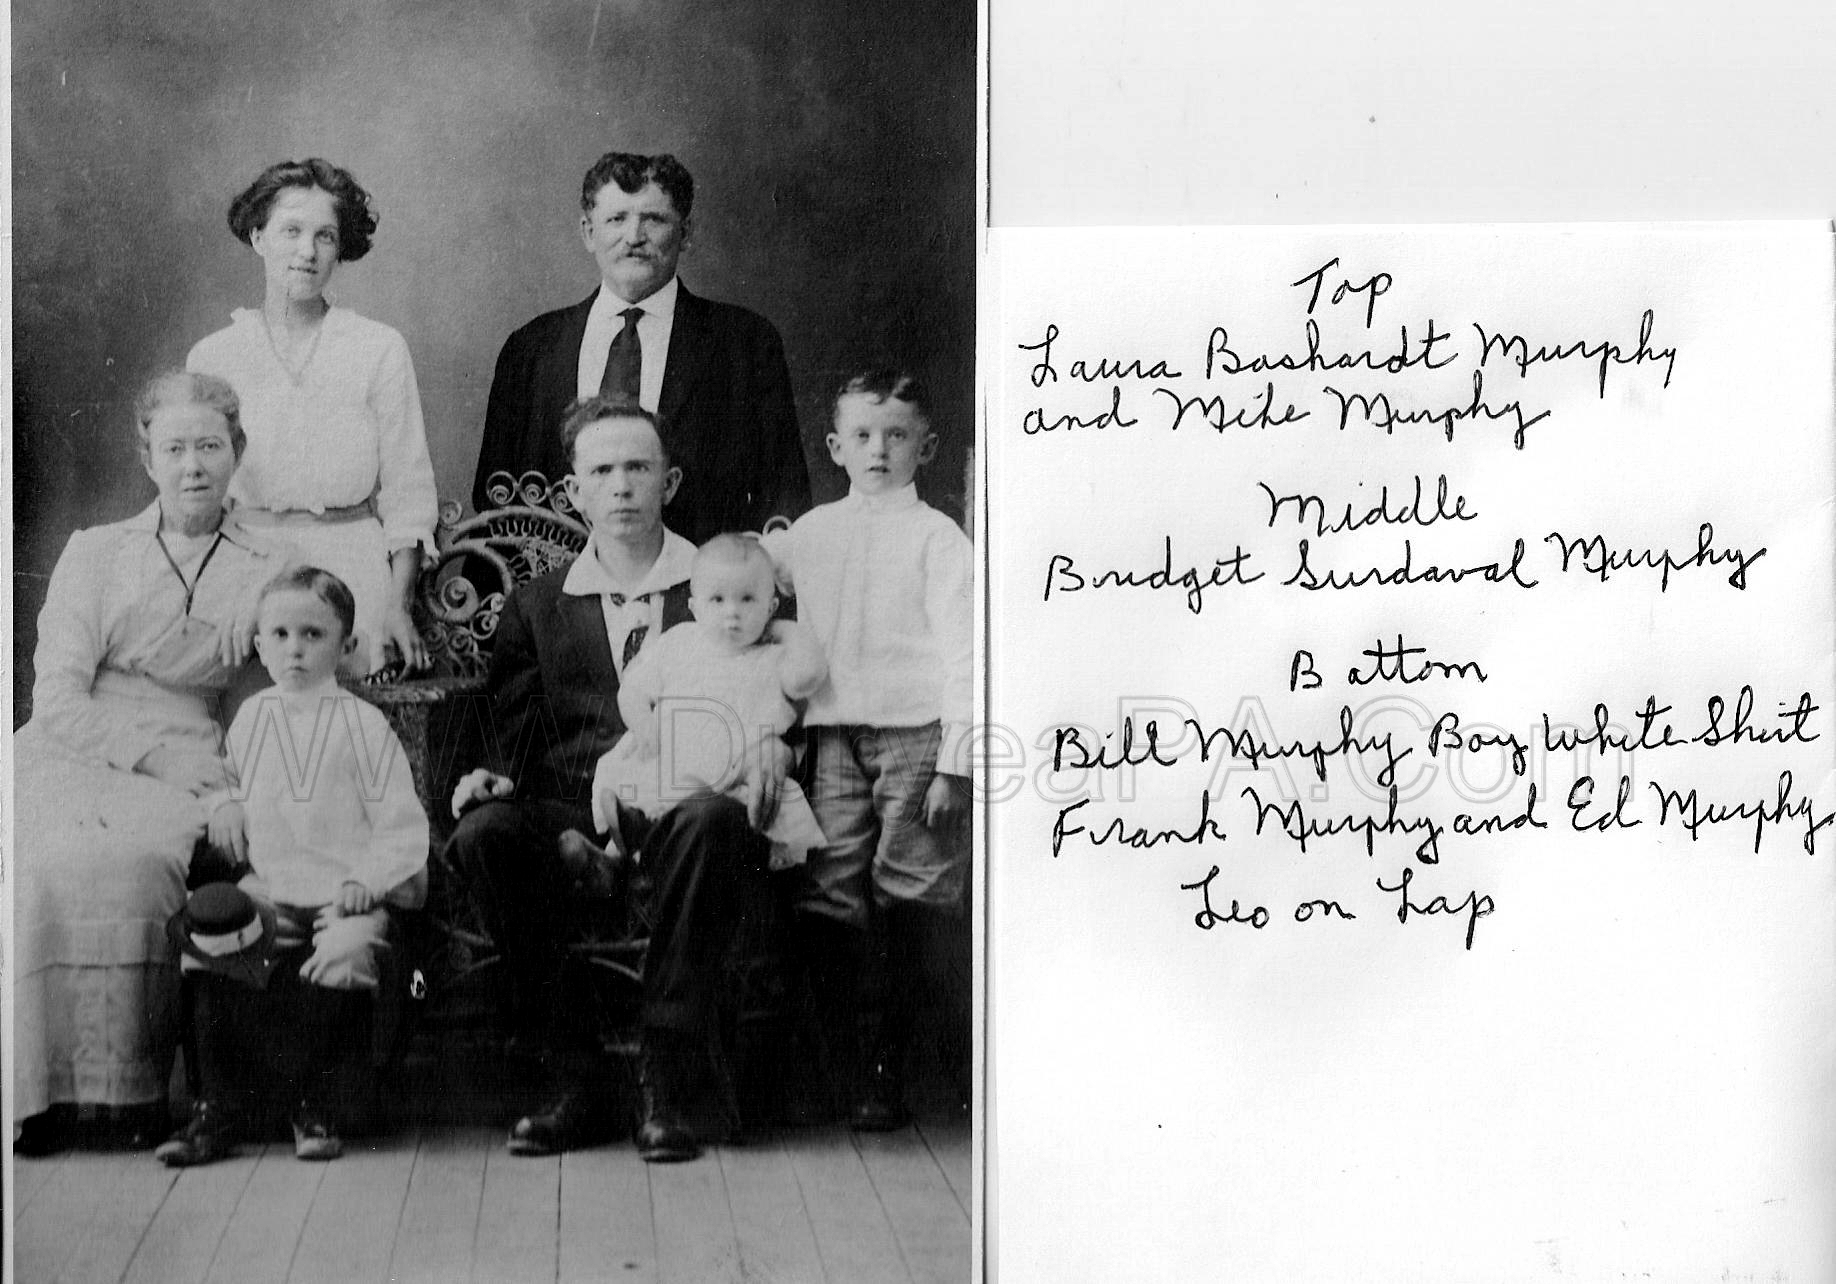 Top
Laura Boshardt Murphy
and Mike Murphy
Middle
Bridget Surdaval Murphy
Bottom
Bill Murphy Boy White Shirt
Frank Murphy and Ed Murphy
Leo on Lap
WWW.DuryeaPA.Com